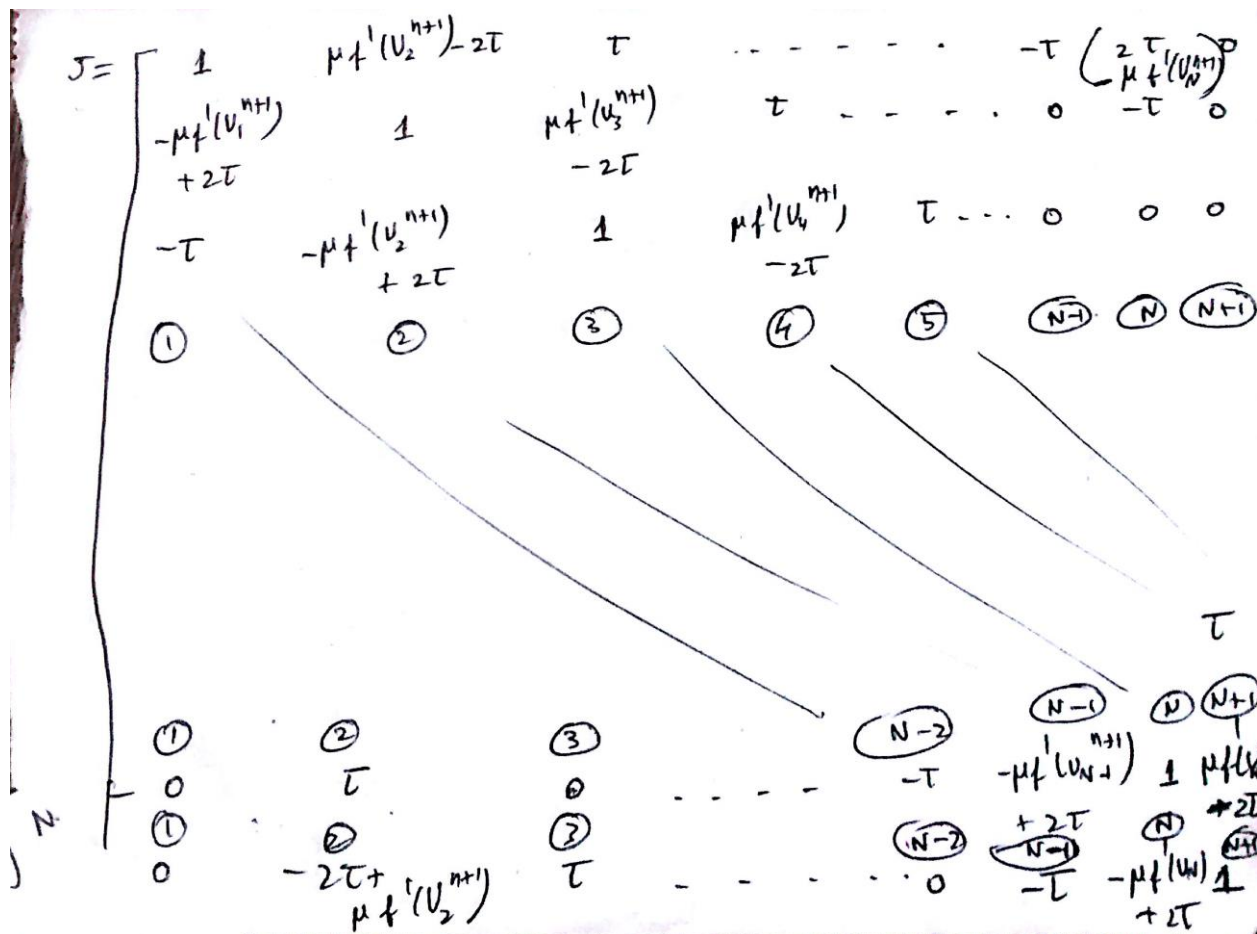 J= 1 μf'(U₂ⁿ⁺¹)-2τ τ ------ -τ (2τ μf'(U_Nⁿ⁺¹)) 0
-μf'(U₁ⁿ⁺¹) +2τ 1 μf'(U₃ⁿ⁺¹) -2τ τ ---- 0 -τ 0
-τ -μf'(U₂ⁿ⁺¹) +2τ 1 μf'(U₄ⁿ⁺¹) -2τ τ --- 0 0 0
① ② ③ ④ ⑤ N-1 N N+1
τ
① ② ③ N-2 N-1 N N+1
N 0 τ 0 ---- -τ -μf'(U_{N-1}ⁿ⁺¹) +2τ 1
① ② ③ N-2 N-1 N N+1
0 -2τ+ μf'(U₂ⁿ⁺¹) τ ---- 0 -τ -μf'(U_N) +2τ 1